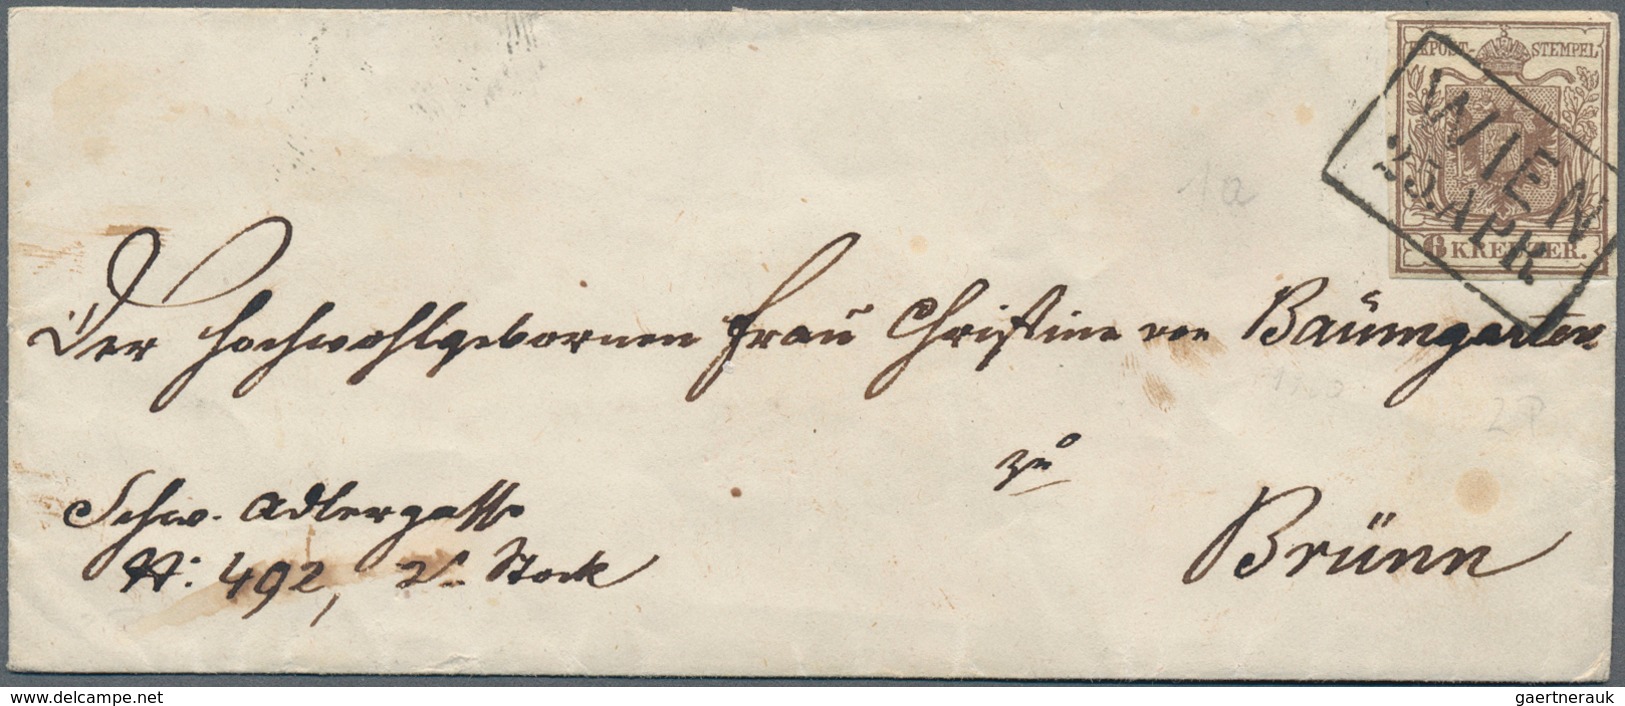 KKPOST-STEMPEL
WIEN
25. APR.
6 KREUZER.
1a
Der Hochwohlgebornen Frau Christine von Baumgarten
zu
Schw. Adlergasse
Brünn
N: 492, 2. Stock
www.delcampe.net
gaertnerauk